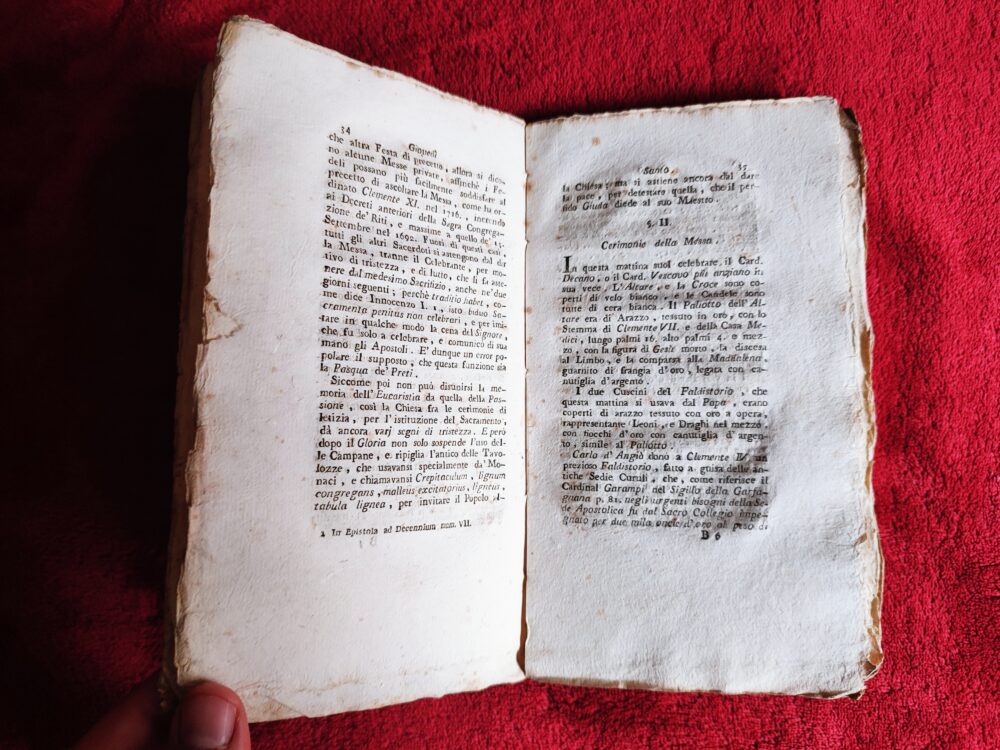 34
Giovedì
che altra Festa di precetto, allora si dico-
no alcune Messe private, affinchè i Fe-
deli possano più facilmente soddisfare al
precetto di ascoltare la Messa, come ha or-
dinato Clemente XI. nel 1716. inerendo
ai Decreti anteriori della Sagra Congrega-
zione de' Riti, e massime a quello de' 13.
Settembre nel 1692. Fuori di questi casi,
tutti gli altri Sacerdoti si astengono dal dir
la Messa, tranne il Celebrante, per mo-
tivo di tristezza, e di lutto, che li fa aste-
nere dal medesimo Sacrifizio, anche ne' due
giorni seguenti; perchè traditio habet, co-
me dice Innocenzo I. 1, isto biduo Sa-
cramenta penitus non celebrari, e per imi-
tare in qualche modo la cena del Signore,
che fu solo a celebrare, e comunicò di sua
mano gli Apostoli. E' dunque un error po-
polare il supposto, che questa funzione sia
la Pasqua de' Preti.
Siccome poi non può disunirsi la me-
moria dell' Eucaristia da quella della Pas-
sione, così la Chiesa fra le cerimonie di
letizia, per l'istituzione del Sacramento,
dà ancora varj segni di tristezza. E però
dopo il Gloria non solo sospende l'uso del-
le Campane, e ripiglia l'antico delle Tavo-
lozze, che usavansi specialmente da' Mo-
naci, e chiamavansi Crepitaculum, lignum
congregans, malleus excitatorius, ligneus,
tabula lignea, per invitare il Popolo al-
1 In Epistola ad Decennium num. VII.
Santo.
35
la Chiesa; ma si astiene ancora dal dare
la pace, per detestare quella, che il per-
fido Giuda diede al suo Maestro.
§. II.
Cerimonie della Messa.
In questa mattina suol celebrare il Card.
Decano, o il Card. Vescovo più anziano in
sua vece. L'Altare, e la Croce sono co-
perti di velo bianco, e le Candele sono
tutte di cera bianca. Il Paliotto dell' Al-
tare era di Arazzo, tessuto in oro, con lo
Stemma di Clemente VII. e della Casa Me-
dici, lungo palmi 16. alto palmi 4. e mez-
zo, con la figura di Gesù morto, la discesa
al Limbo, e la comparsa alla Maddalena,
guarnito di frangia d'oro, legata con ca-
nutiglia d'argento.
I due Cuscini del Faldistorio, che
questa mattina si usava dal Papa, erano
coperti di arazzo tessuto con oro a opera,
rappresentante Leoni, e Draghi nel mezzo,
con fiocchi d'oro con canutiglia d'argen-
to, simile al Paliotto.
Carlo d'Angiò donò a Clemente IV. un
prezioso Faldistorio, fatto a guisa delle an-
tiche Sedie Curuli, che, come riferisce il
Cardinal Garampi nel Sigillo della Garfa-
gnana p. 81. negli urgenti bisogni della Se-
de Apostolica fu dal Sacro Collegio impe-
gnato per due mila oncie d'oro al peso di
B 6